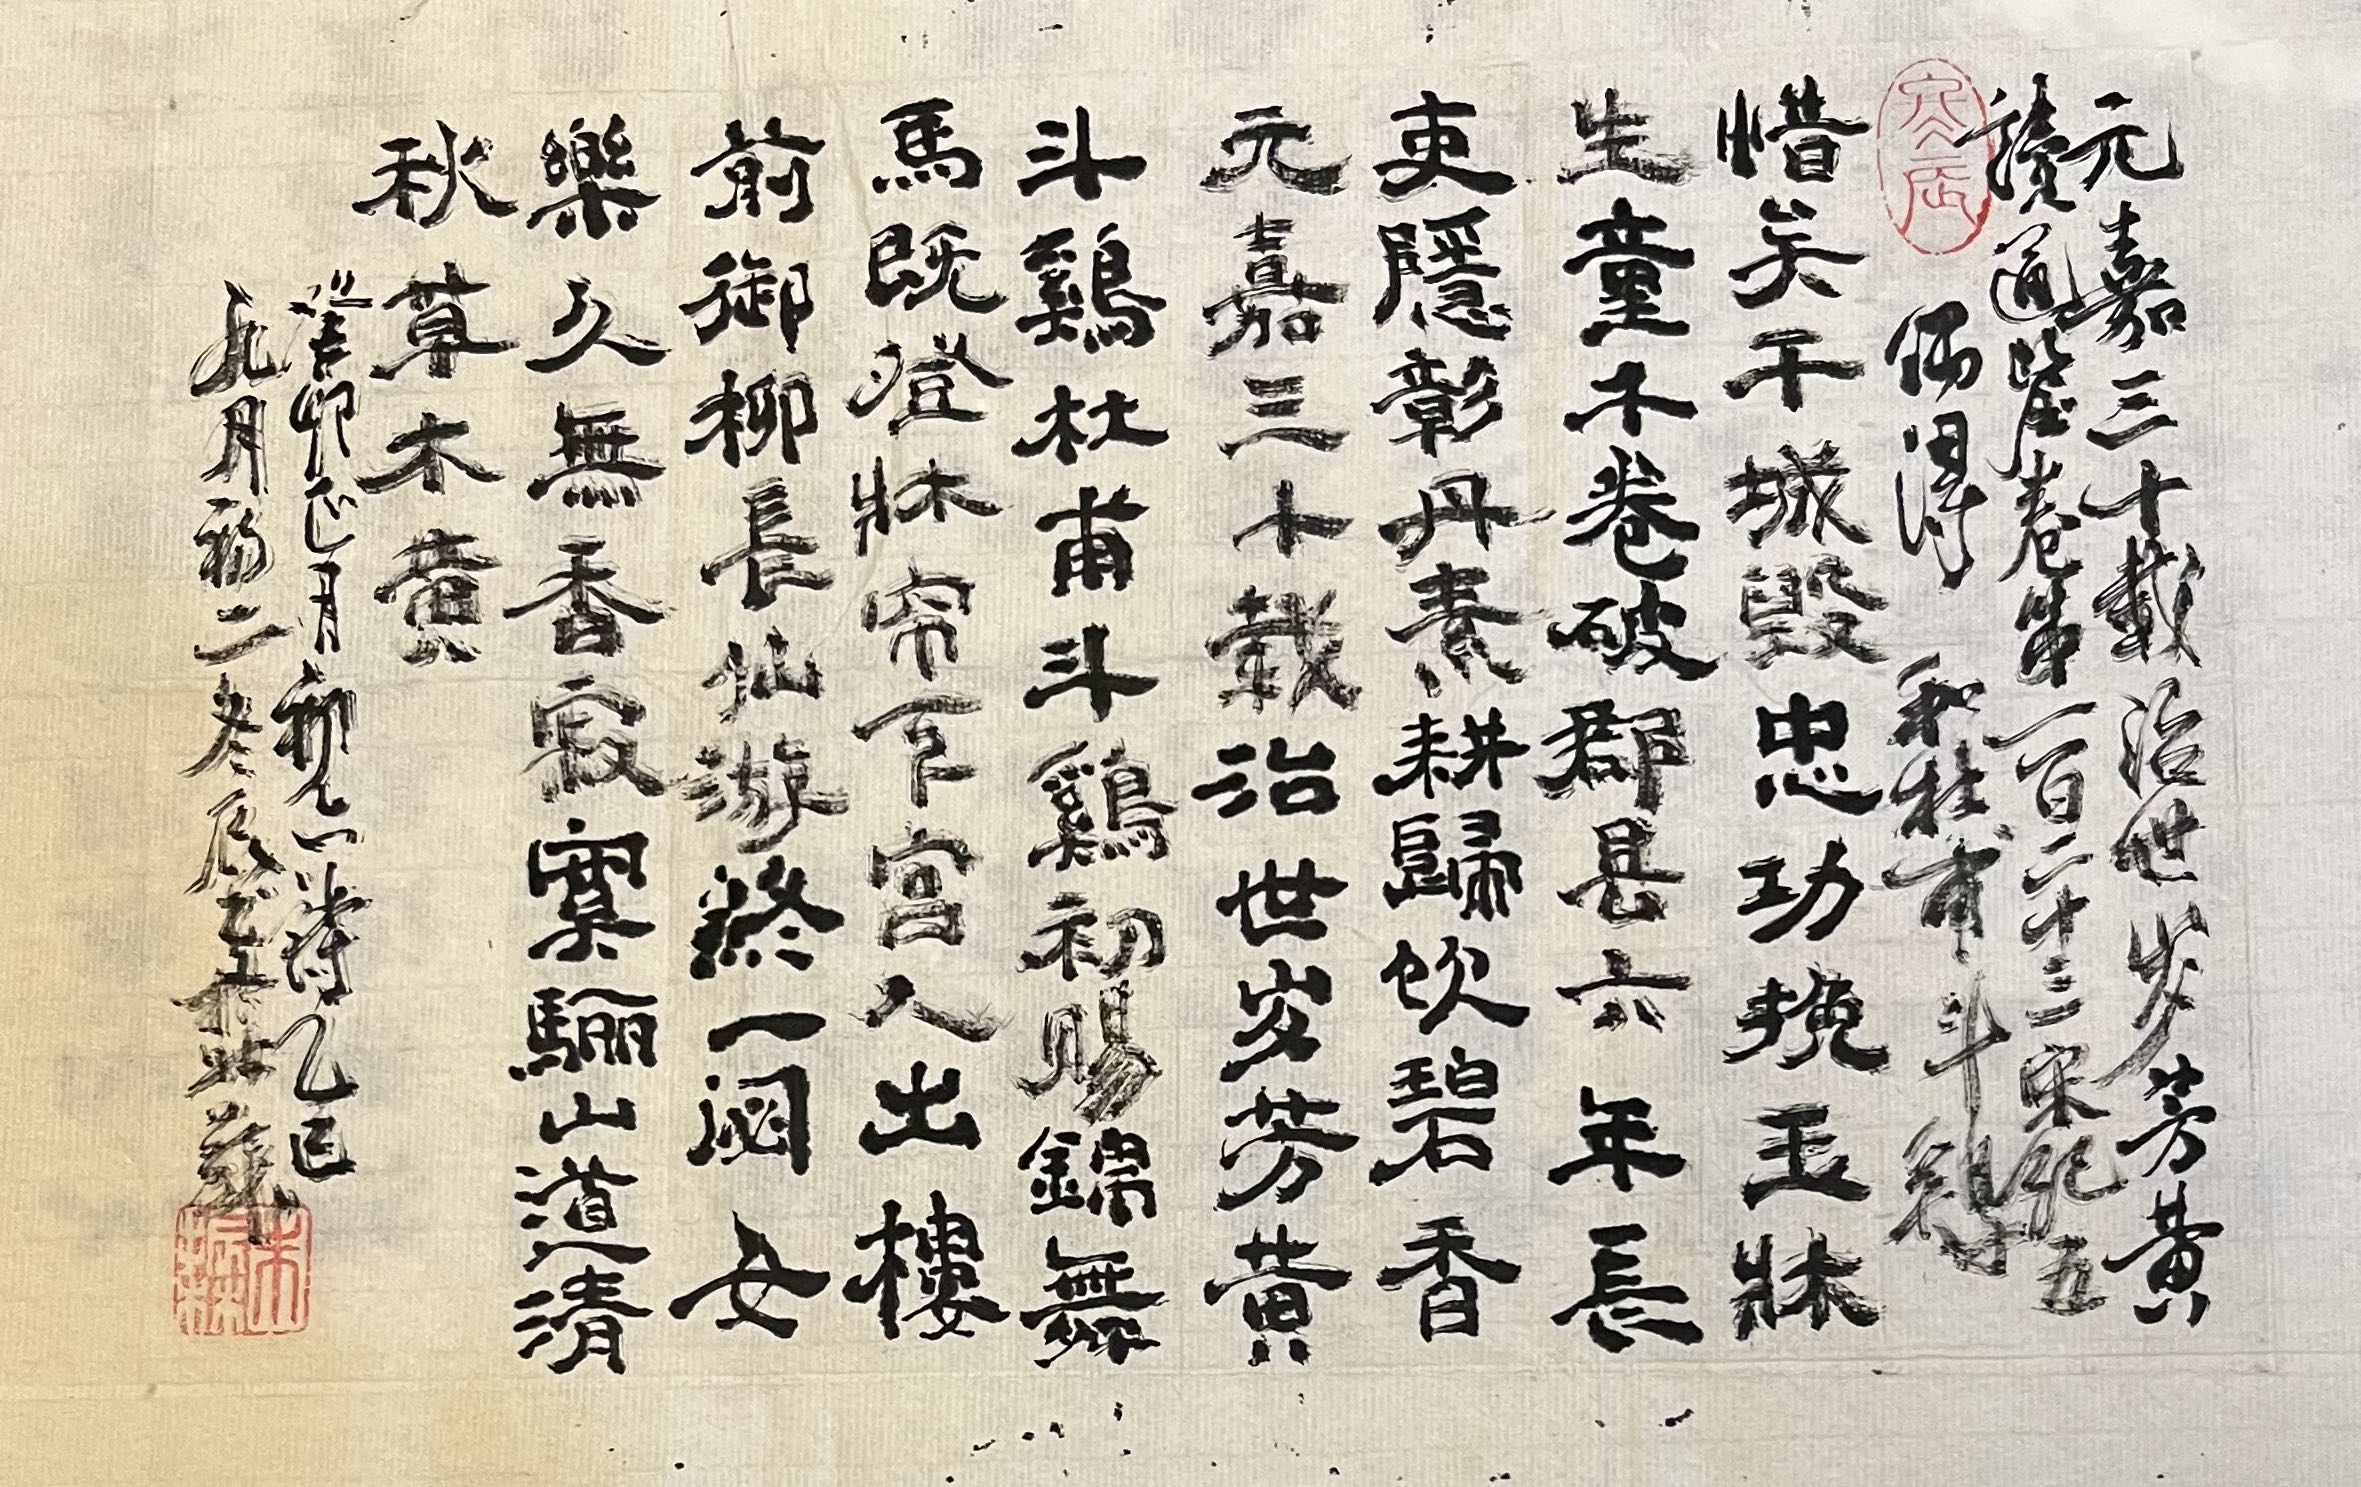 元嘉三十載治世歲芳黃
讀通鑒卷第一百二十三宋紀五
偶得 和杜甫斗雞
惜矣干城毀忠功挽玉牀
生童不卷破郡县六年長
吏隱彰丹素耕歸飲碧香
元嘉三十載治世歲芳黃
斗鷄杜甫斗鷄初賜錦舞
馬既登牀帘下宮人出樓
前御柳長仙游終一閟女
樂久無香寂寞驪山道清
秋草木黃
癸卯正月初八 乙巳
九月初二